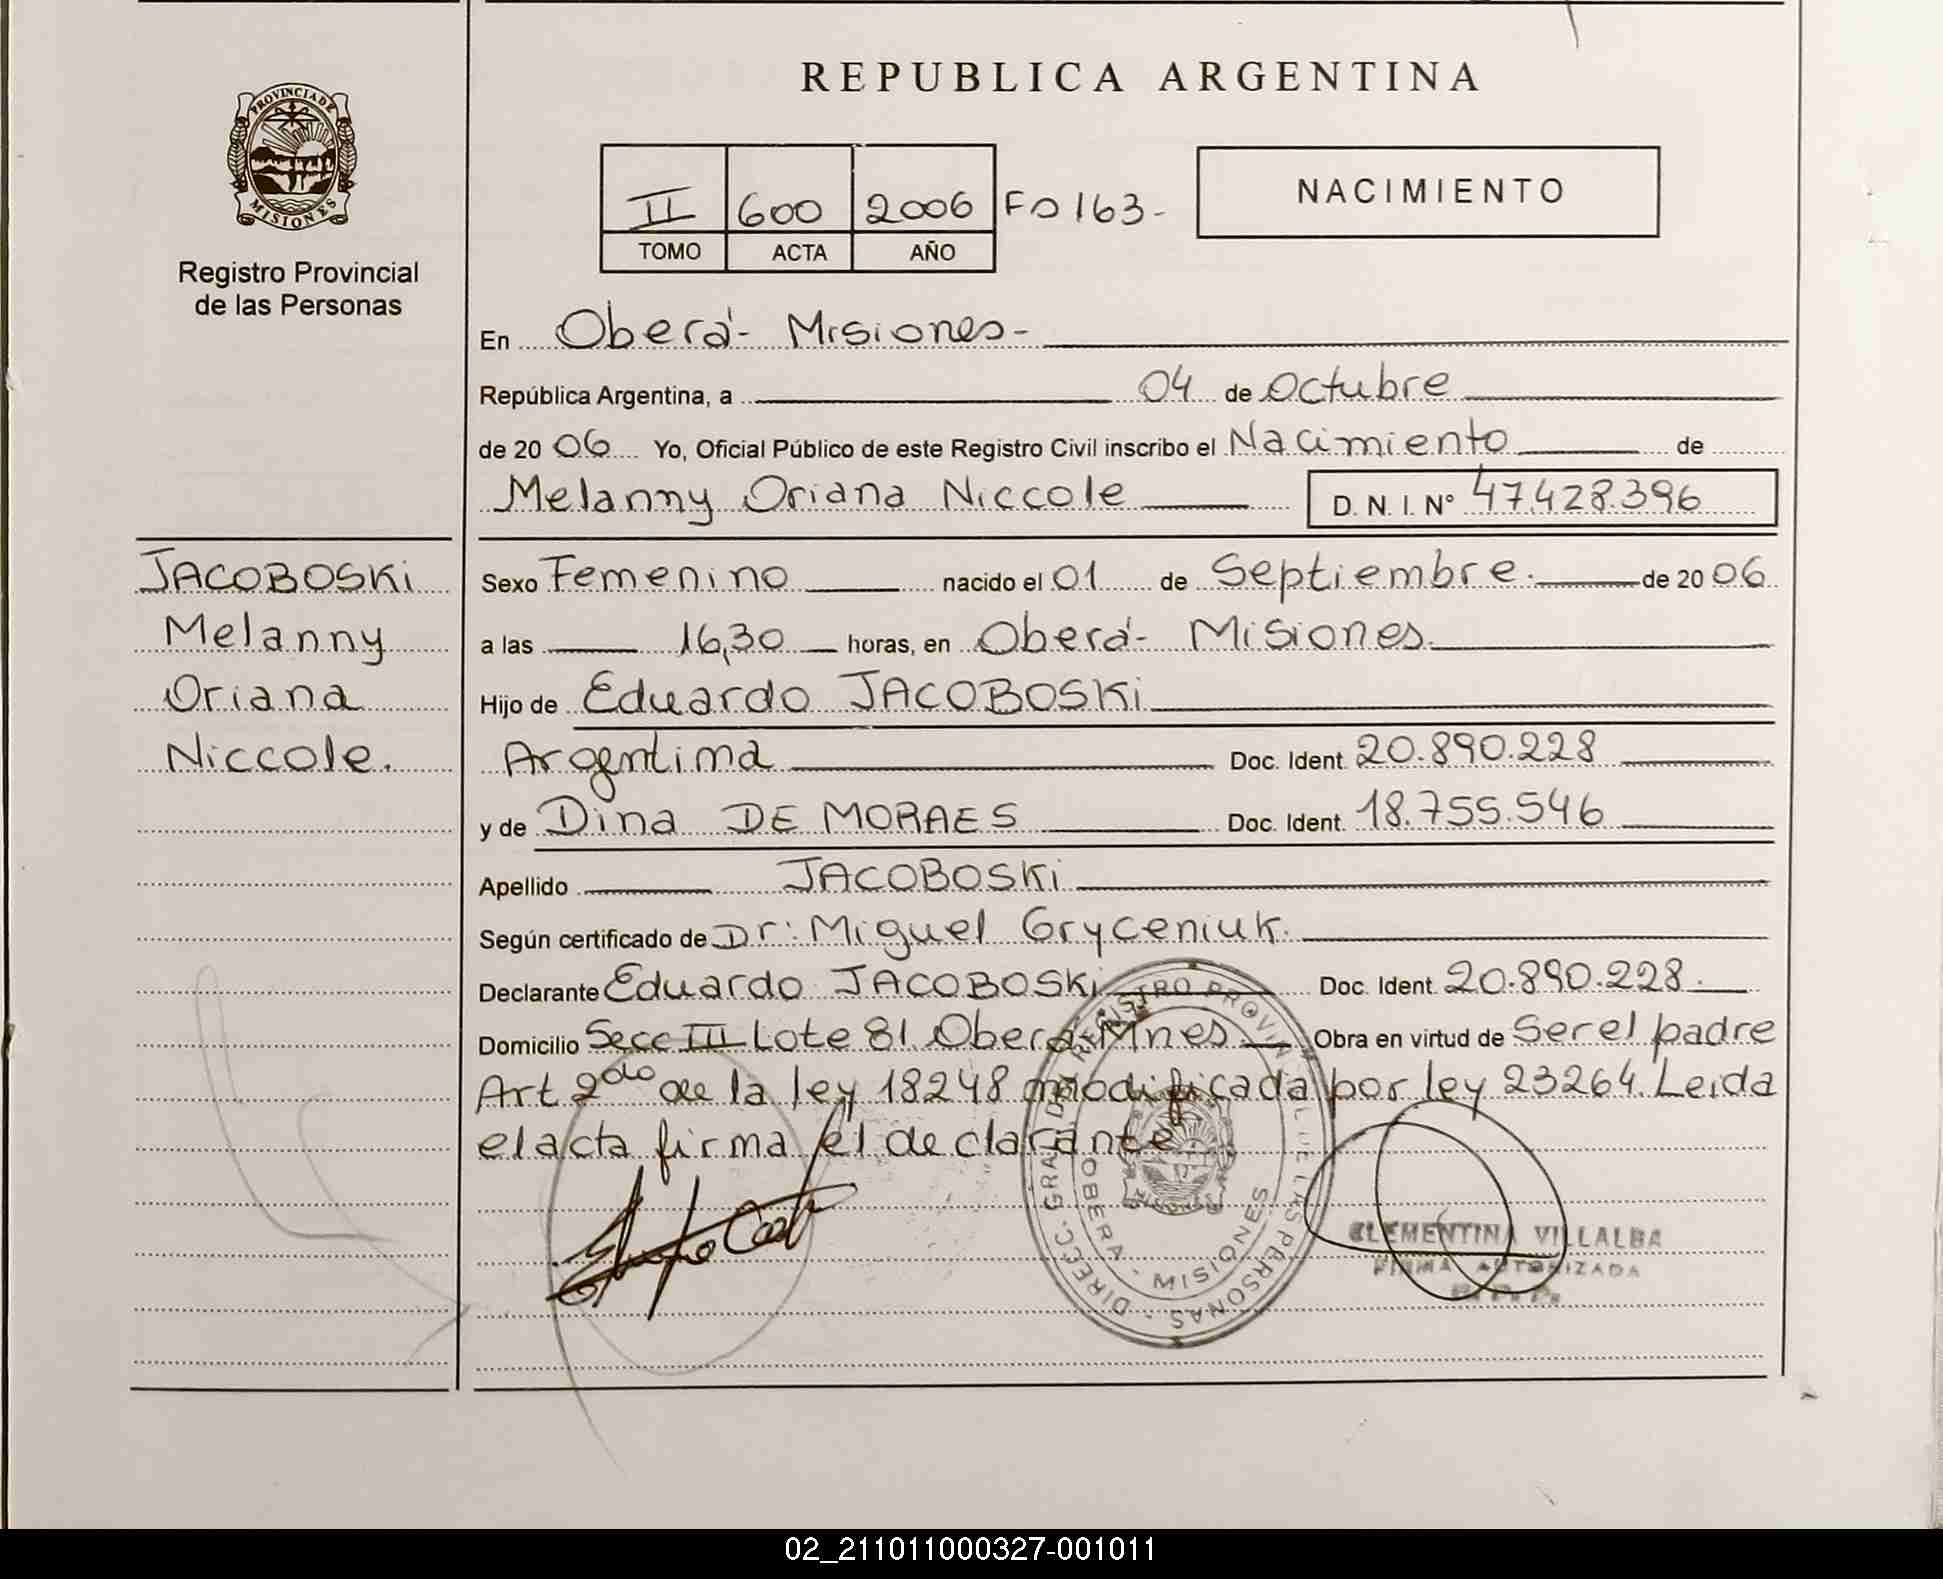 REPUBLICA ARGENTINA
PROVINCIA DE
MISIONES
Registro Provincial
de las Personas
II 600 2006 Fo 163-
TOMO ACTA AÑO
NACIMIENTO
En Oberá- Misiones-
República Argentina, a 04 de Octubre
de 2006 Yo, Oficial Público de este Registro Civil inscribo el Nacimiento de
Melanny Oriana Niccole D. N. I. N° 47.428.396
JACOBOSKi
Melanny
Oriana
Niccole.
Sexo Femenino nacido el 01 de Septiembre. de 2006
a las 16,30 horas, en Oberá- Misiones.
Hijo de Eduardo JACOBOSKi
Argentina Doc. Ident. 20.890.228
y de Dina DE MORAES Doc. Ident. 18.755.546
Apellido JACOBOSKi
Según certificado de Dr: Miguel Gryceniuk.
Declarante Eduardo JACOBOSKi Doc. Ident. 20.890.228.
Domicilio Secc III Lote 81 Oberá-Mnes Obra en virtud de Ser el padre
Art 2do de la ley 18248 modificada por ley 23264. Leida
el acta firma el declarante
DIREC. GRAL. DEL REGISTRO PROVINCIAL DE LAS PERSONAS
OBERA - MISIONES
CLEMENTINA VILLALBA
FIRMA AUTORIZADA
02_211011000327-001011